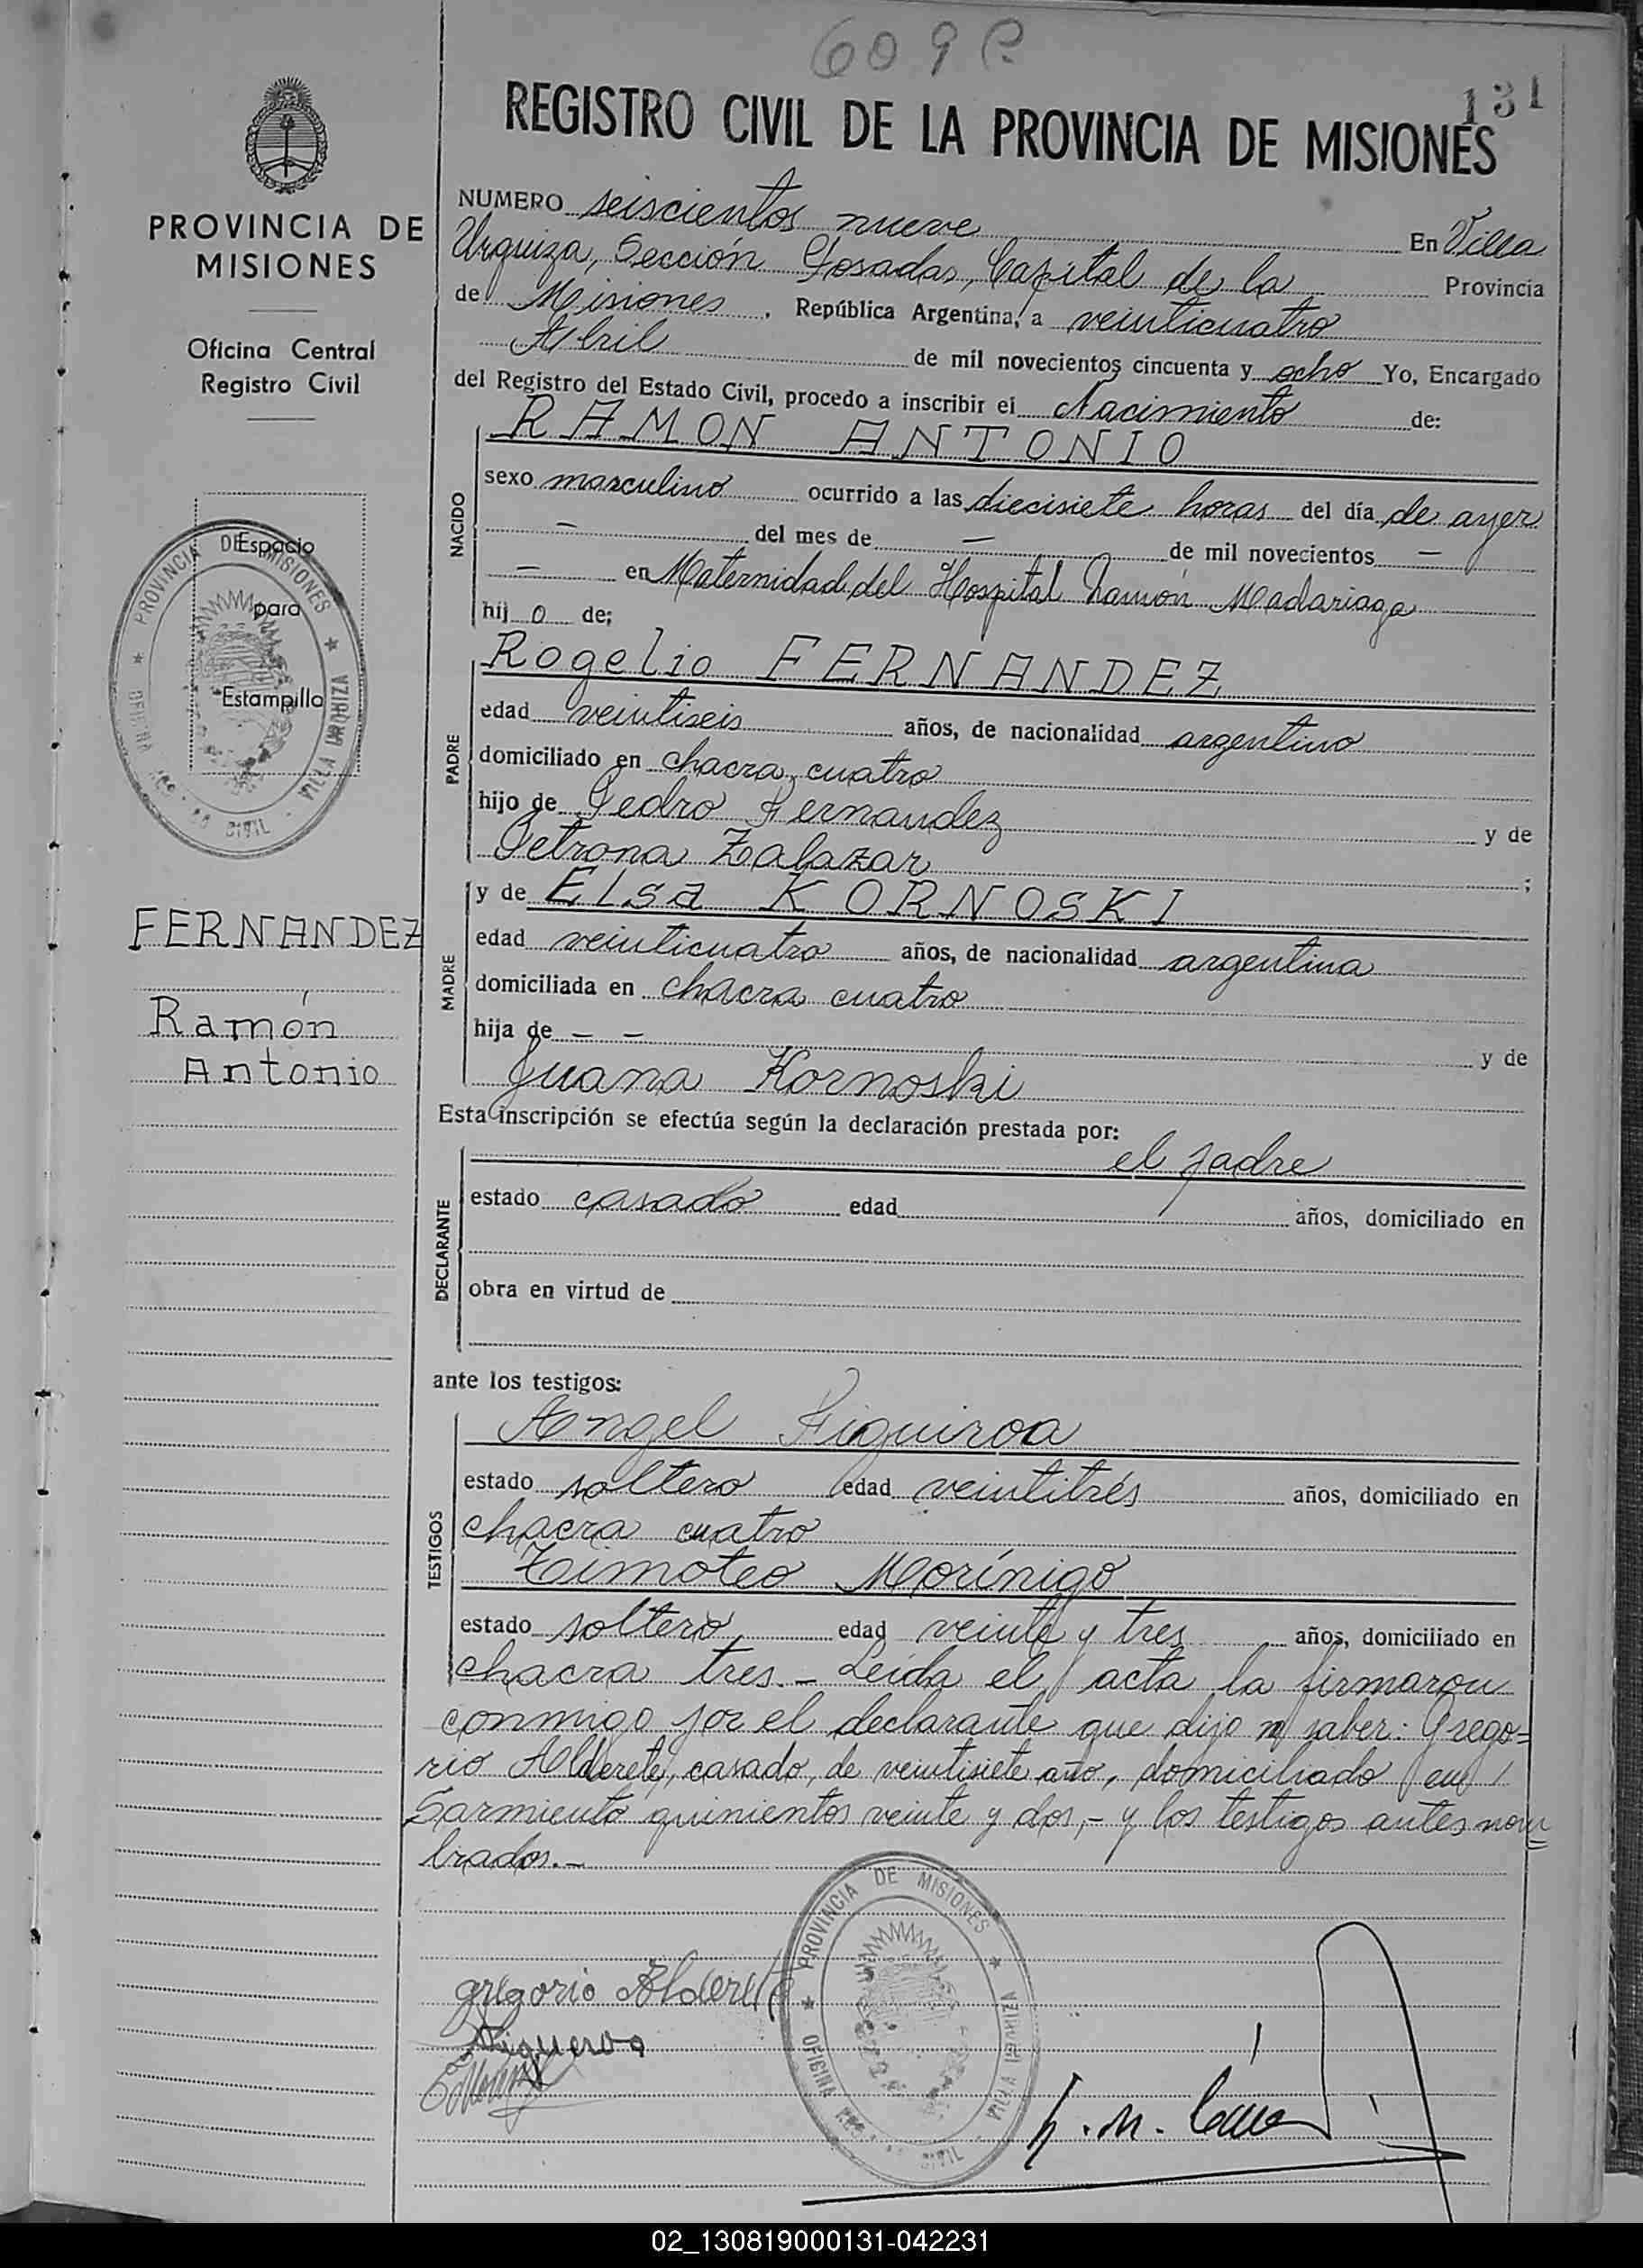 609 P
131
REGISTRO CIVIL DE LA PROVINCIA DE MISIONES
PROVINCIA DE
MISIONES
Oficina Central
Registro Civil
Espacio
para
Estampilla
PROVINCIA DE MISIONES
OFICINA REG. DE CIVIL VILLA URQUIZA
FERNANDEZ
Ramón
Antonio
NUMERO seiscientos nueve En Villa
Urquiza, Sección Posadas, Capital de la Provincia
de Misiones, República Argentina, a veinticuatro
Abril de mil novecientos cincuenta y ocho Yo, Encargado
del Registro del Estado Civil, procedo a inscribir el Nacimiento de:
NACIDO
RAMON ANTONIO
sexo masculino ocurrido a las diecisiete horas del día de ayer
— del mes de — de mil novecientos —
— en Maternidad del Hospital Ramón Madariaga
hij o de;
PADRE
Rogelio FERNANDEZ
edad veintiseis años, de nacionalidad argentino
domiciliado en chacra cuatro
hijo de Pedro Fernandez y de
Petrona Zalazar ;
MADRE
y de Elsa KORNOSKI
edad veinticuatro años, de nacionalidad argentina
domiciliada en chacra cuatro
hija de — — y de
Juana Kornoski
Esta inscripción se efectúa según la declaración prestada por:
DECLARANTE
el padre
estado casado edad años, domiciliado en
obra en virtud de
ante los testigos:
TESTIGOS
Angel Figuiroa
estado soltero edad veintitrés años, domiciliado en
chacra cuatro
Timoteo Morínigo
estado soltero edad veinte y tres años, domiciliado en
chacra tres.- Leída el acta la firmaron
conmigo por el declarante que dijo no saber: Grego=
rio Alderete, casado, de veintisiete año, domiciliado en
Sarmiento quinientos veinte y dos,- y los testigos antes nom=
brados.-
gregorio Alderete
Figueroa
PROVINCIA DE MISIONES
OFICINA REG. DE CIVIL VILLA URQUIZA
02_130819000131-042231